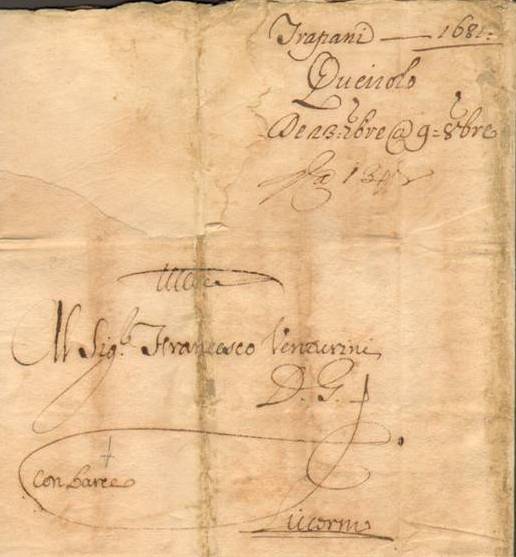 Trapani — 1681:
Queirolo
De 23: 7bre @ 9= 8bre
Al Sig.r Francesco Venturini
D. G.
con barca
Livorno